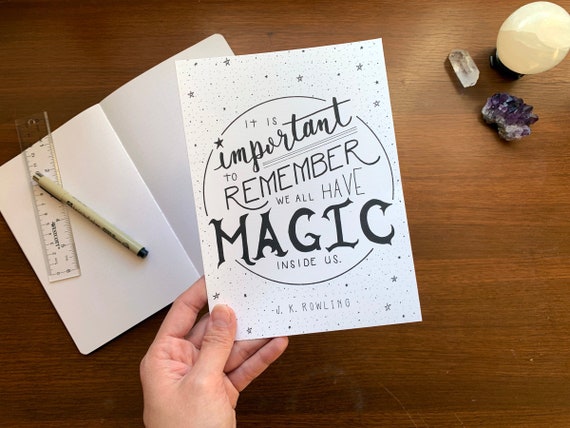 IT IS
important
TO
REMEMBER
WE ALL HAVE
MAGIC
INSIDE US.
-J. K. ROWLING